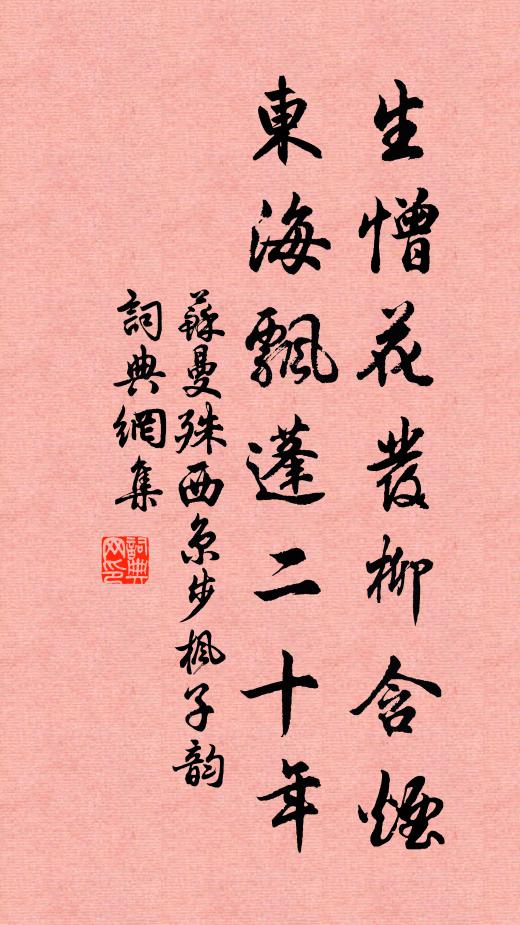 生憎花發柳含煙
東海飄蓬二十年
蘇曼殊西京步楓子韵
詞典網集
詞典
网印